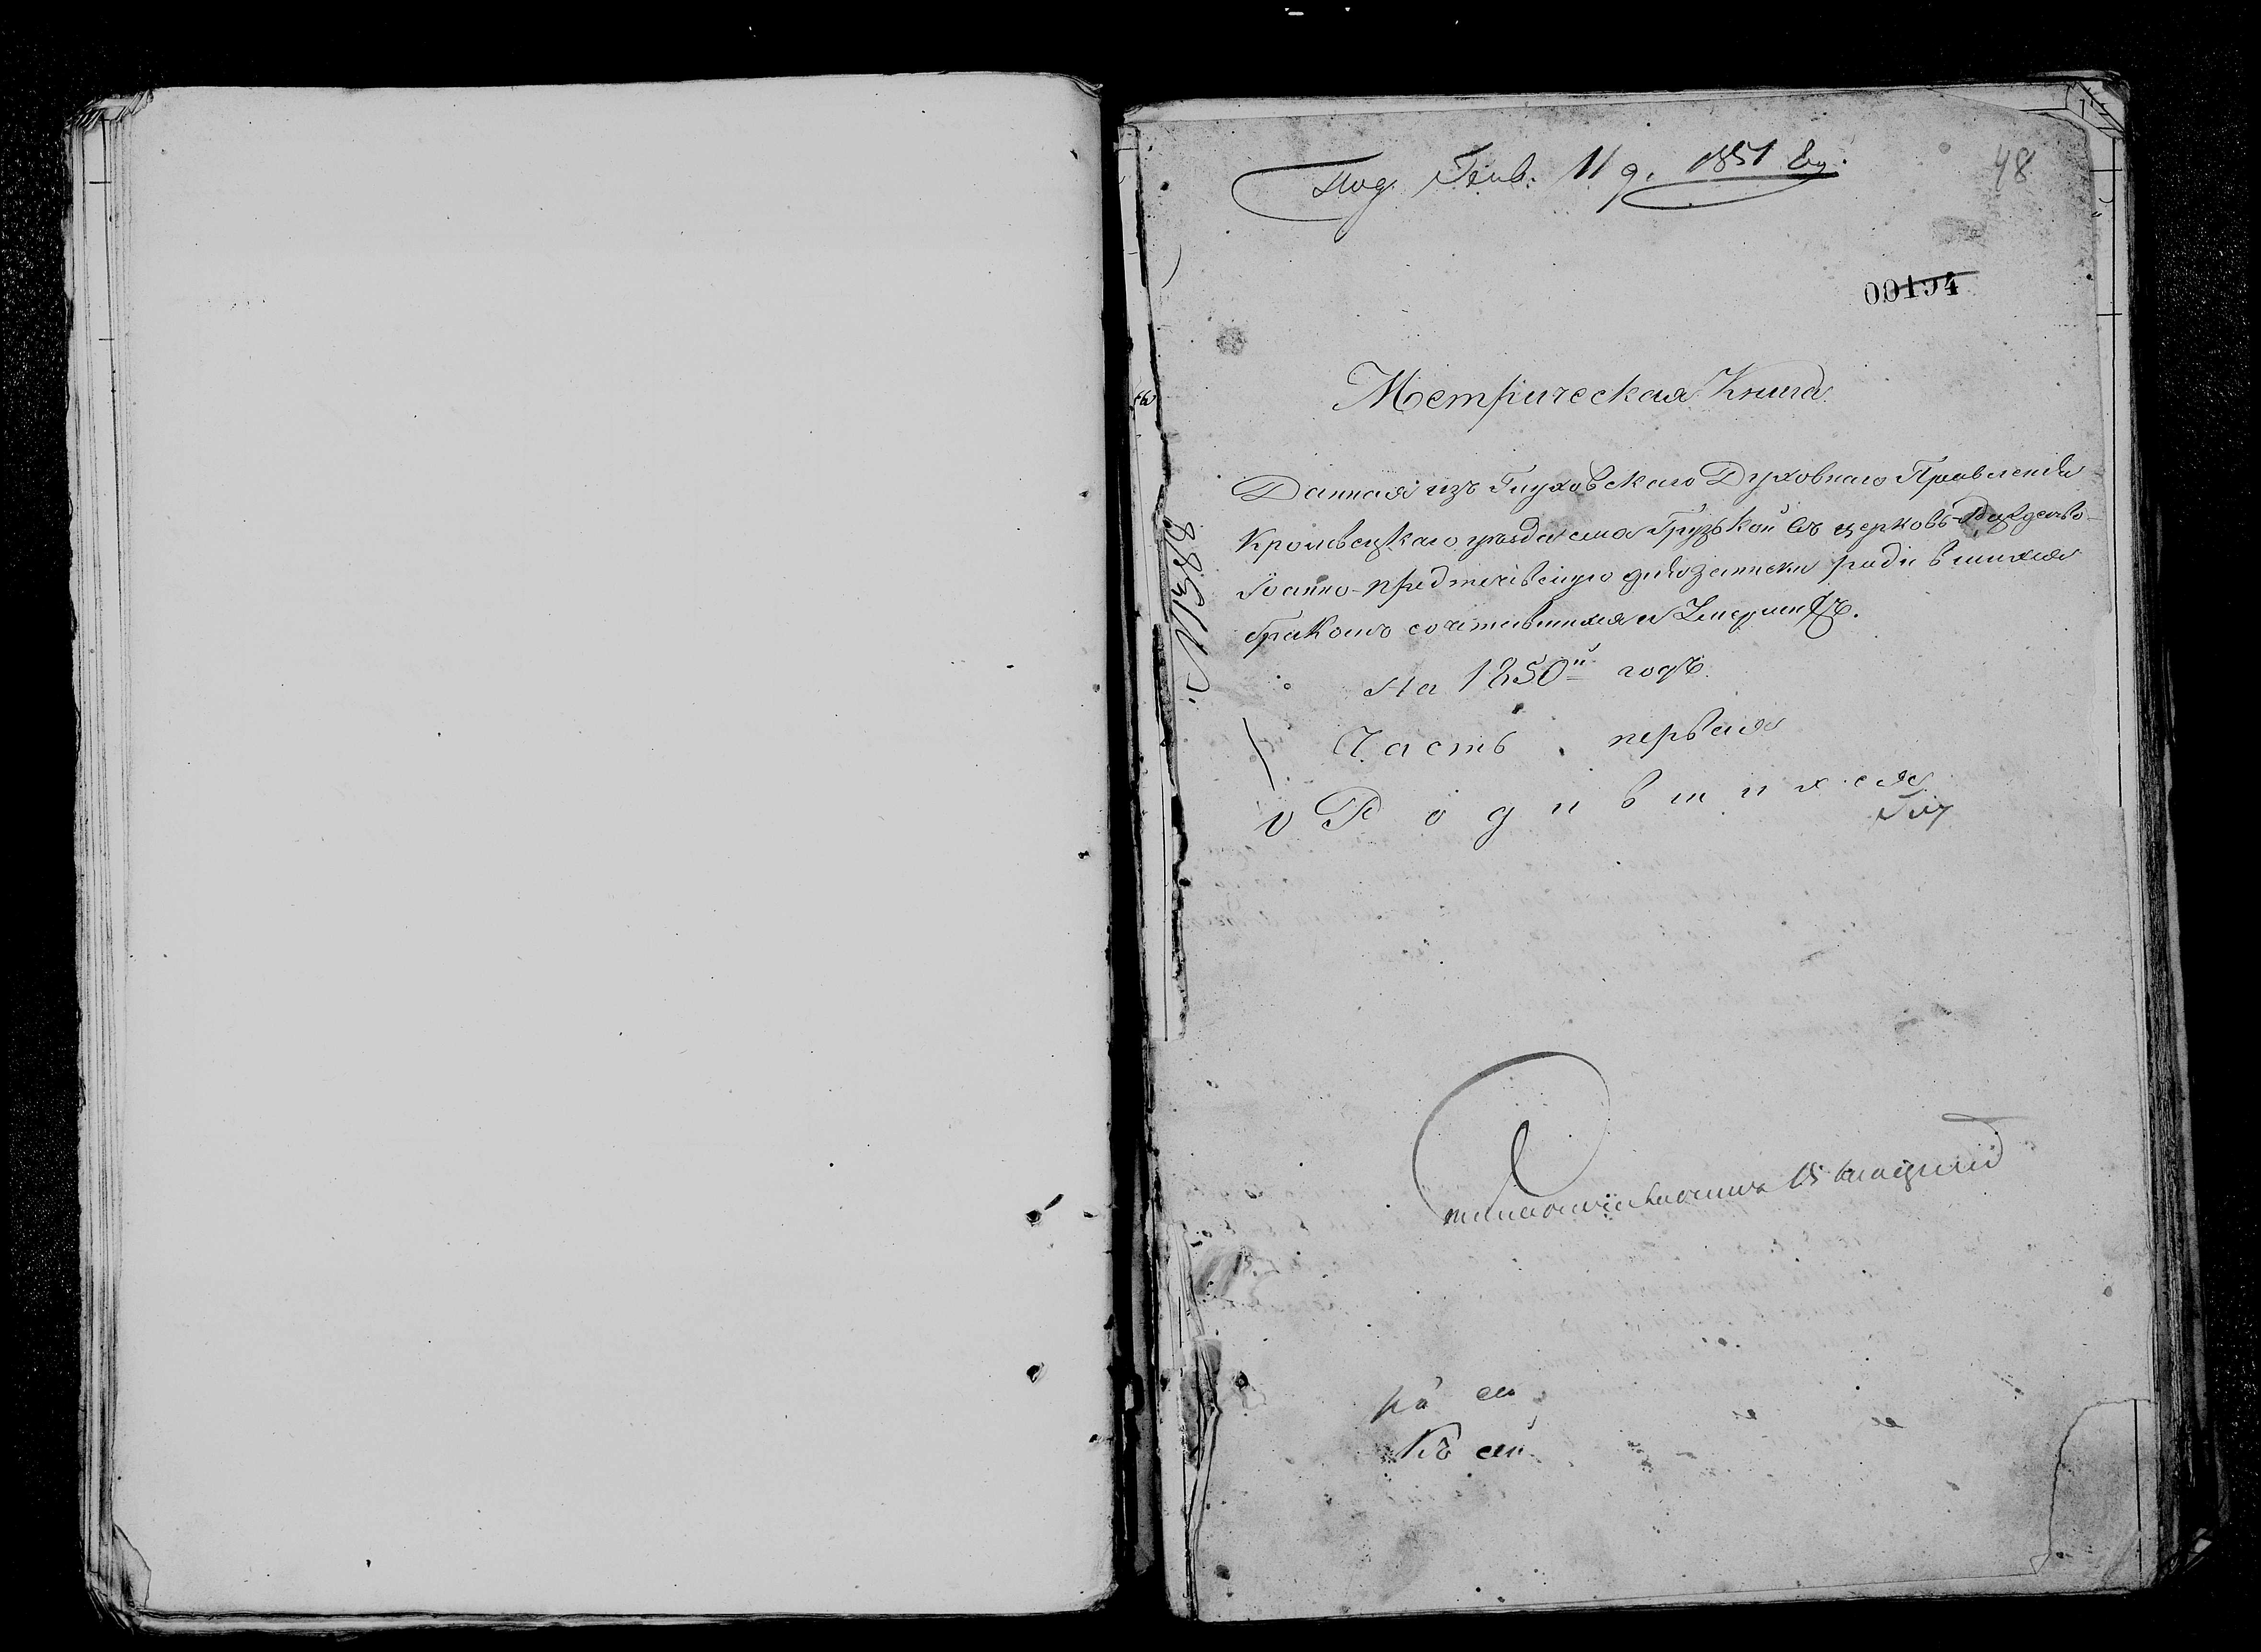 Под. Генв. 11 д. 1851 го.
48
00194
Метрическая Книга
Данная изъ Глуховскаго Духовнаго Правленія
Кролевецкаго уѣзда села Грузской въ церковь Рождество-
Іоанно-предтечевскую для записки родившихся
бракомъ сочетавшихся и Умершихъ.
на 1850й годъ.
Часть первая
о Родившихся
№1388